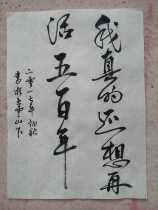 我真的还想再
活五百年
二零一七年初秋